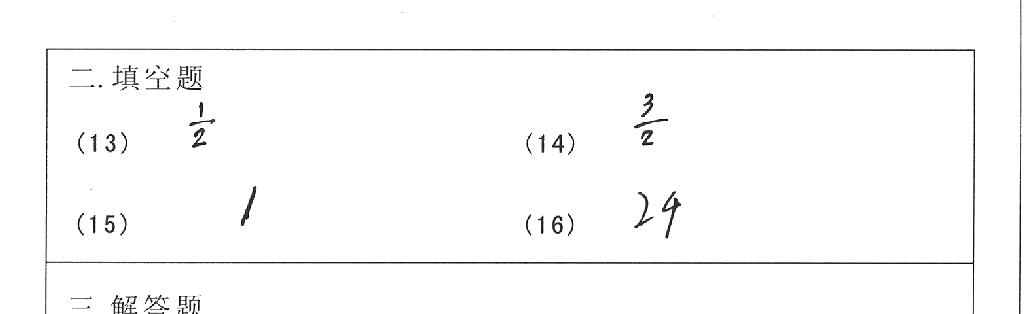 二.填空题
(13) 1/2 (14) 3/2
(15) 1 (16) 24
三.解答题